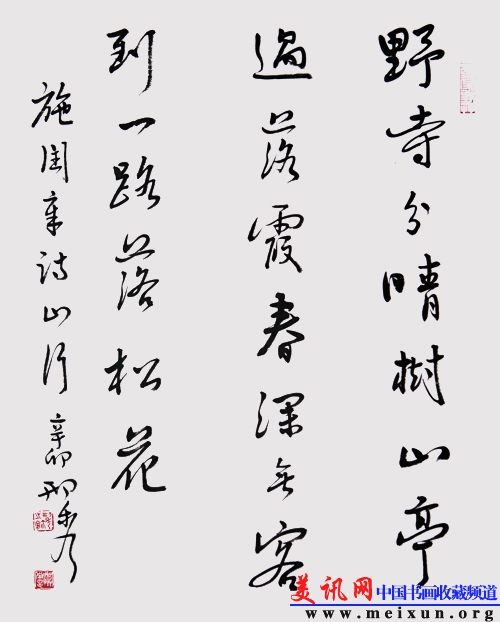 野寺分晴樹山亭
過落霞春深無客
到一路落松花
施閏章詩山行 辛卯 邢
美讯网 中国书画收藏频道
www.meixun.org